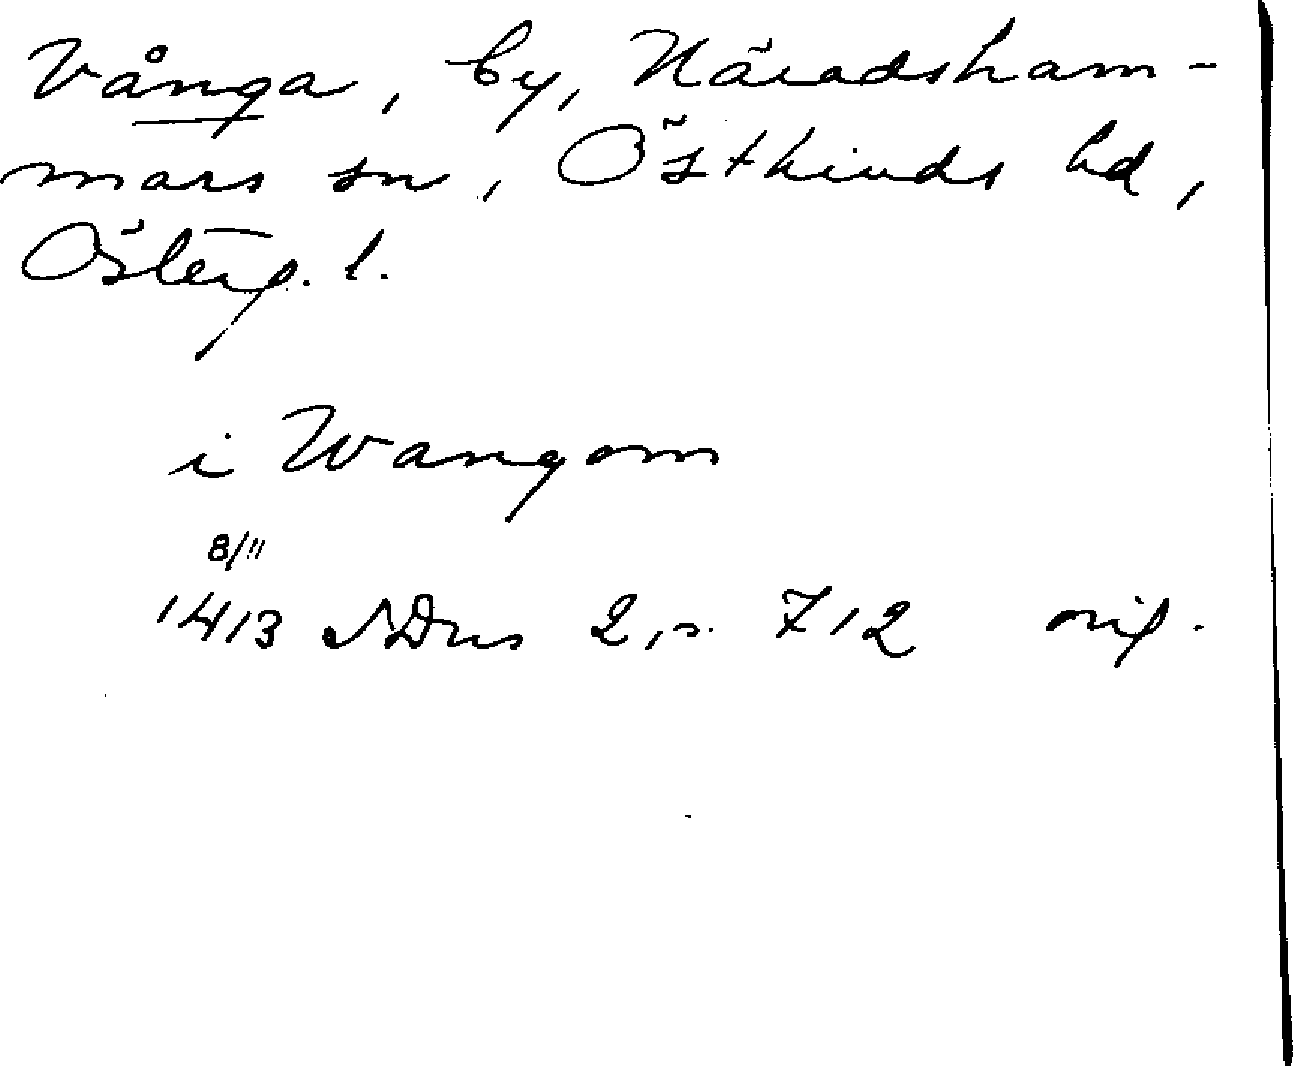 Vånga, by, Häradsham-
mars sn, Östkinds hd,
Österg. l.
i Wangom
8/11
1413 SDns 2, s. 712 orig.